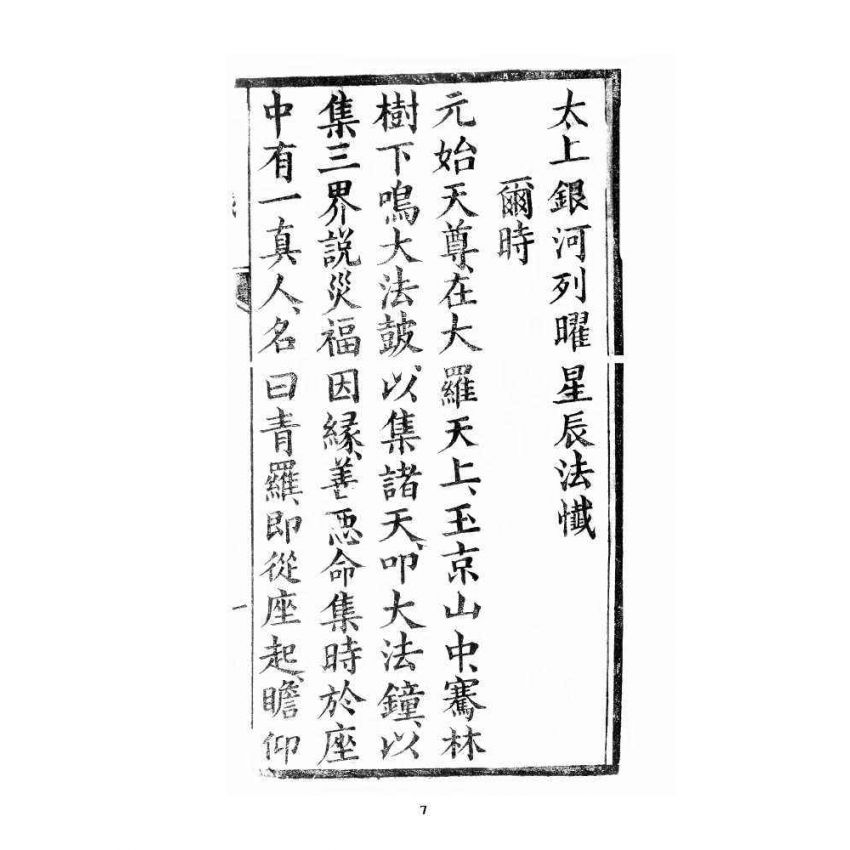 太上銀河列曜星辰法懺
爾時
元始天尊、在大羅天上、玉京山中、騫林
樹下鳴大法皷、以集諸天、叩大法鐘、以
集三界説災福因縁、善惡命集時於座
中有一真人、名曰青羅、即從座起、瞻仰
7